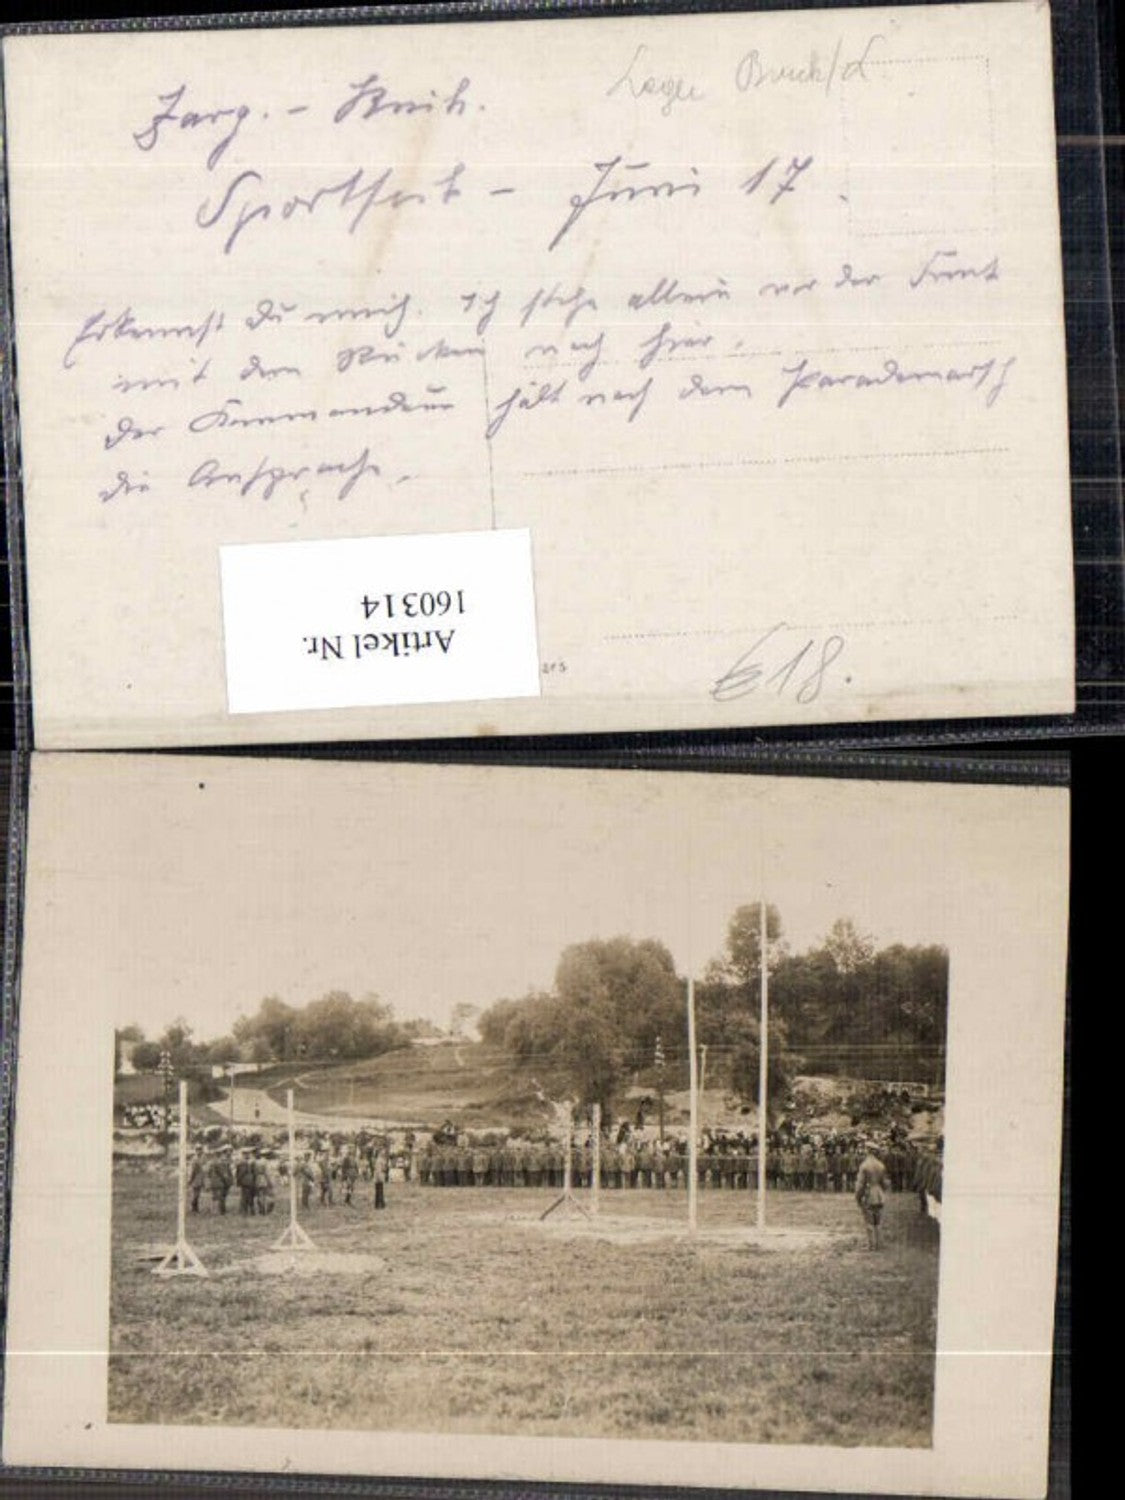 Lager Bruck/L.
Farg. - Knik.
Sportfest - Juni 17.
Erkennst Du mich. Ich stehe allein vor der Front
mit dem Rücken nach hier.
der Kommandeur hält nach dem Parademarsch
die Ansprache.
Artikel Nr.
160314
€18.